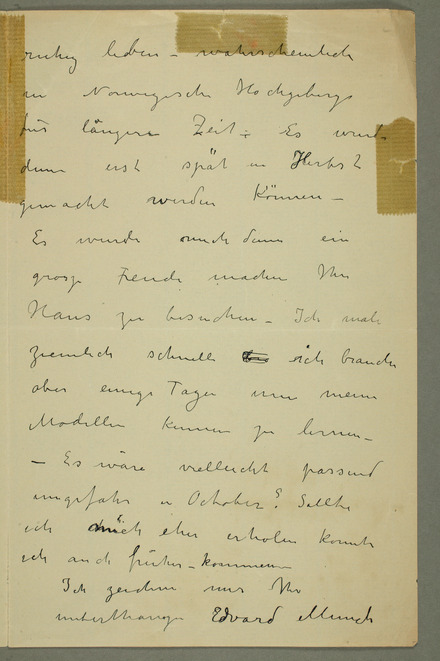 ruhig leben – wahrscheinlich
in Norwegische Hochgebirge
für längere Zeit. Es wurde
dann erst spät in Herbst
gemacht werden können –
Es wurde mich dann ein
grosse Freude machen Ihr
Haus zu besuchen – Ich male
ziemlich schnell ich brauche
aber einige Tage um meine
Modellen kennen zu lernen –
– Es wäre vielleicht passend
ungefähr in October? Sollte
ich mich eher erholen konnte
ich auch früher – kommen –
Ich zeichne mir Ihr
unterthänige Edvard Munch